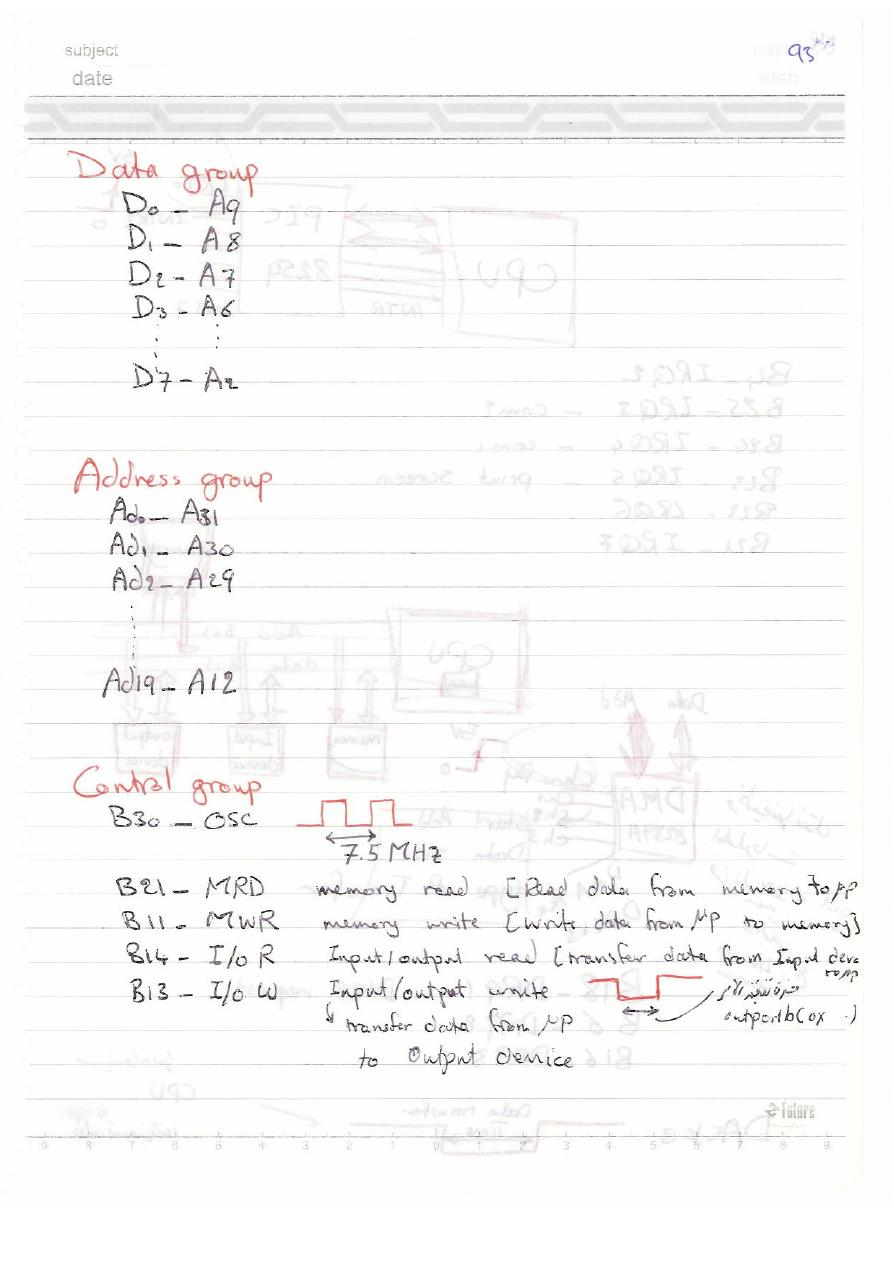 subject
date
93
Data group
D0 - A9
D1 - A8
D2 - A7
D3 - A6
D7 - A2
Address group
Ad0 - A31
Ad1 - A30
Ad2 - A29
Ad19 - A12
Control group
B30 - OSC
7.5 MHz
B21 - MRD memory read [Read data from memory to μp
B11 - MWR memory write [Write data from μp to memory]
B14 - I/o R Input/output read [transfer data from Input device to μp
B13 - I/o W Input/output write
outportb(0x .)
transfer data from μp
to Output device
Future
9 8 7 6 5 4 3 2 1 0 1 2 3 4 5 6 7 8 9